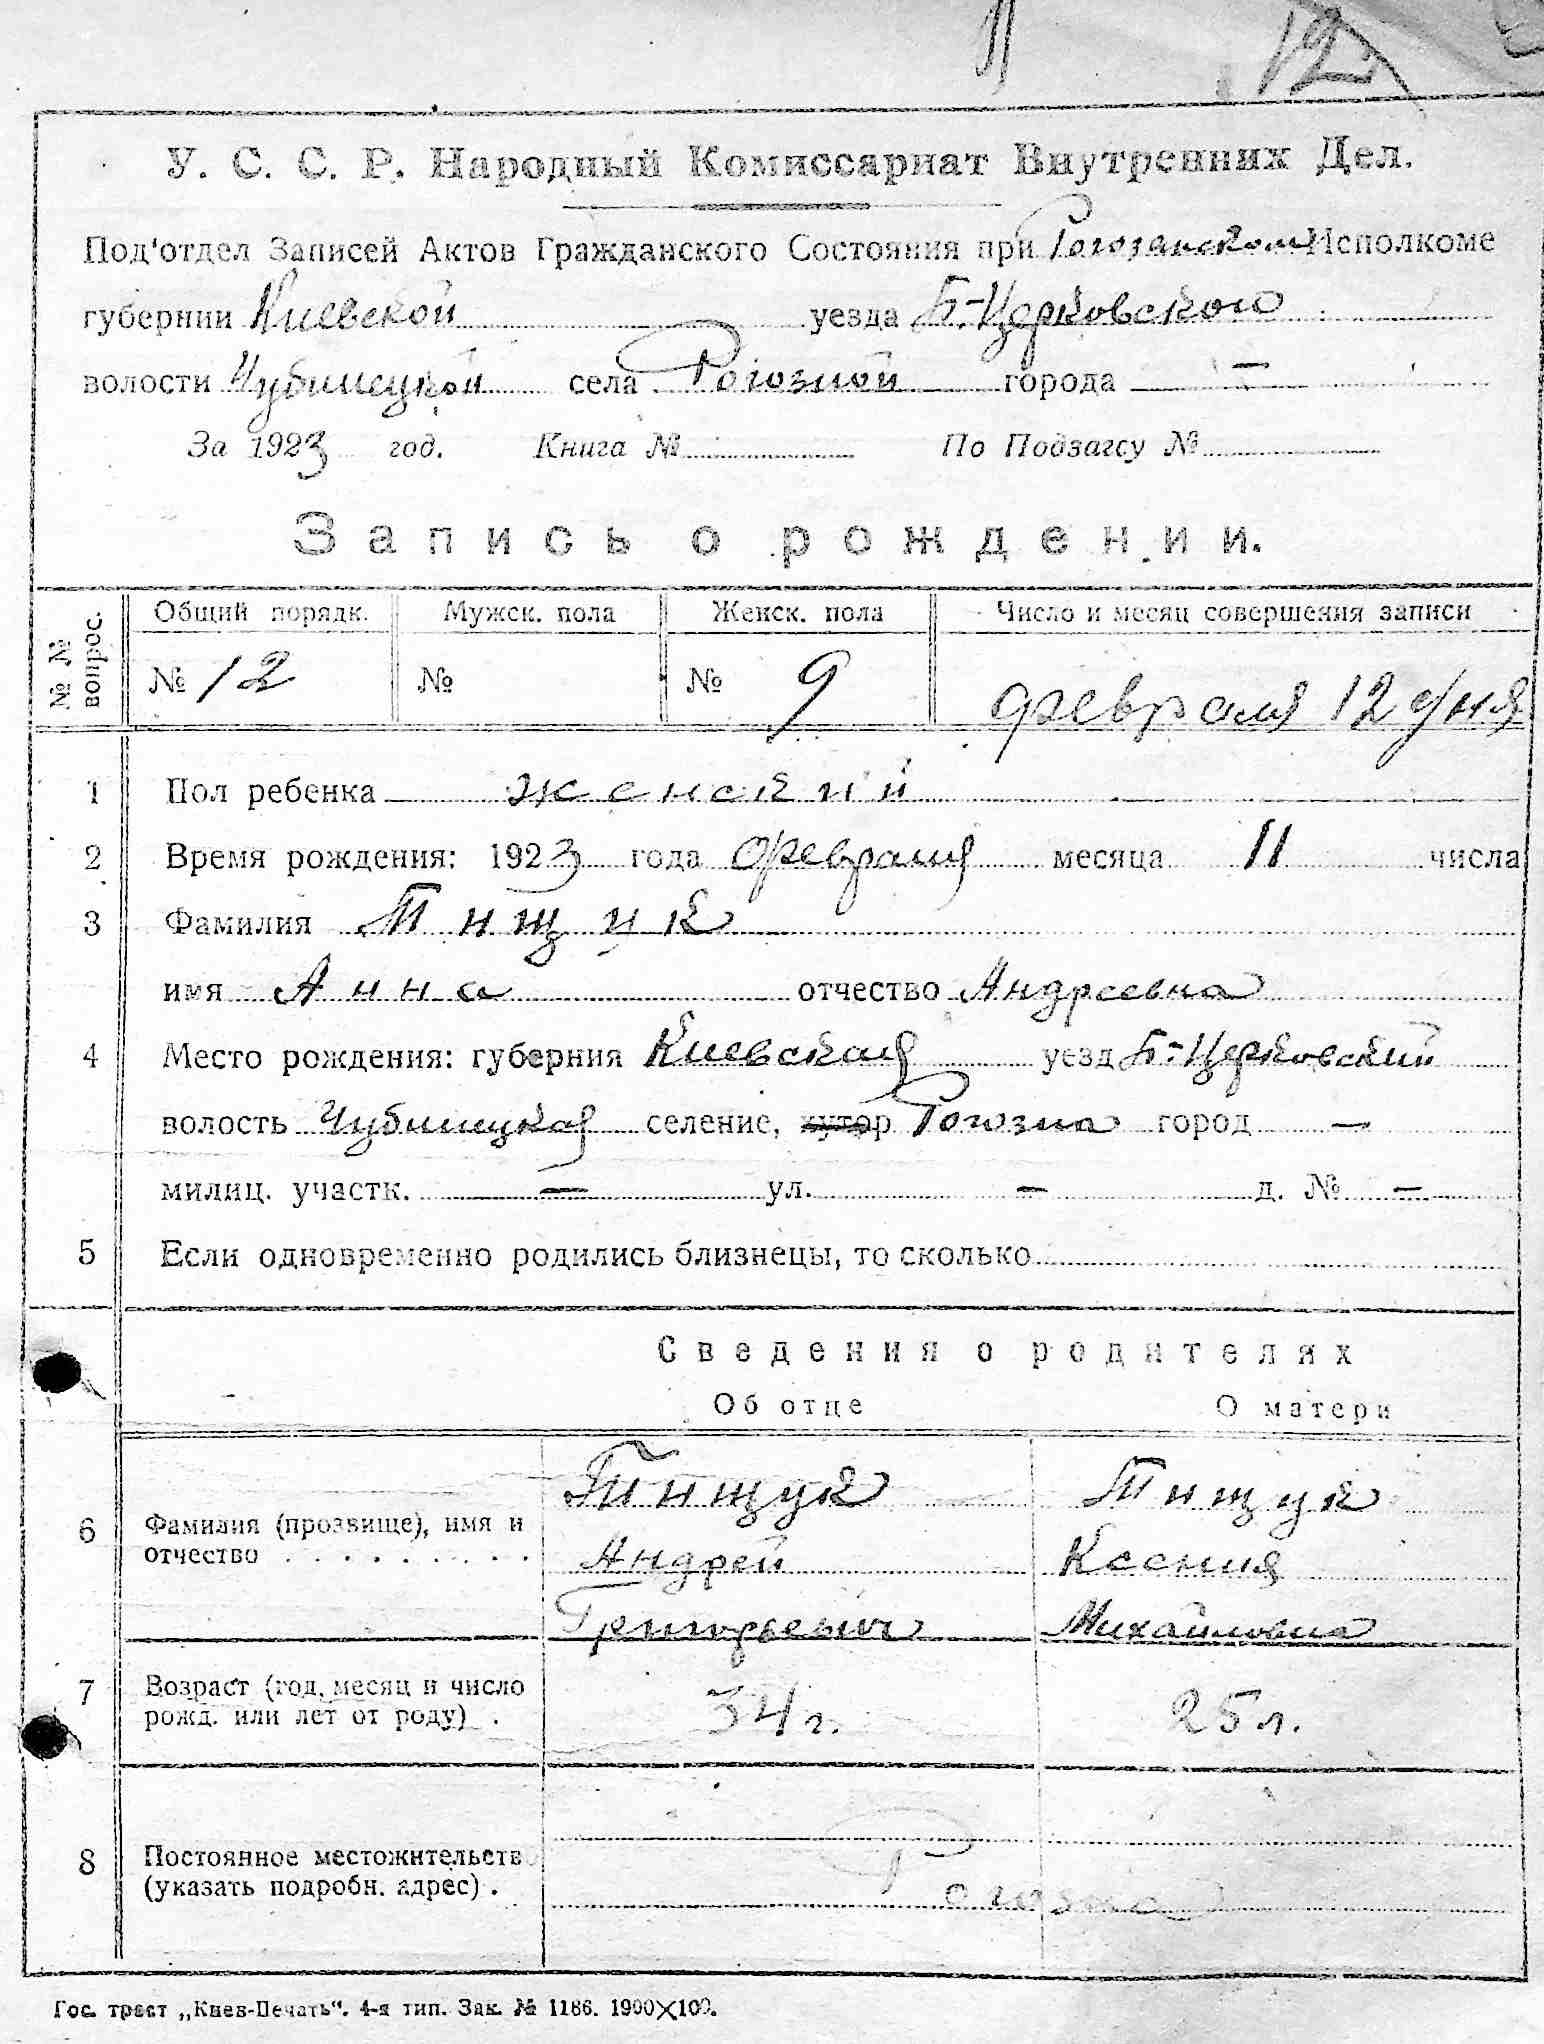 12
У. С. С. Р. Народный Комиссариат Внутренних Дел.
Под'отдел Записей Актов Гражданского Состояния при Рогозянском Исполкоме
губернии Киевской уезда Б.-Церковского
волости Чубинецкой села Рогозной города —
За 1923 год. Книга № По Подзагсу №
Запись о рождении.
№ № вопрос. Общий порядк. Мужск. пола Женск. пола Число и месяц совершения записи
№ 12 № № 9 февраля 12 дня
1 Пол ребенка женский
2 Время рождения: 1923 года февраля месяца 11 числа
3 Фамилия Тищук
имя Анна отчество Андреевна
4 Место рождения: губерния Киевская уезд Б.-Церковский
волость Чубинецкая селение, хутор Рогозна город —
милиц. участк. — ул. — д. № —
5 Если одновременно родились близнецы, то сколько
Сведения о родителях
Об отце О матери
6 Фамилия (прозвище), имя и отчество . . . . . . . . . .
Тищук Тищук
Андрей Ксения
Григорьевич Михайловна
7 Возраст (год, месяц и число рожд. или лет от роду) . 34 г. 25 л.
8 Постоянное местожительств (указать подробн. адрес) . Рогозна
Гос. трест „Киев-Печать". 4-я тип. Зак. № 1186. 1900×100.